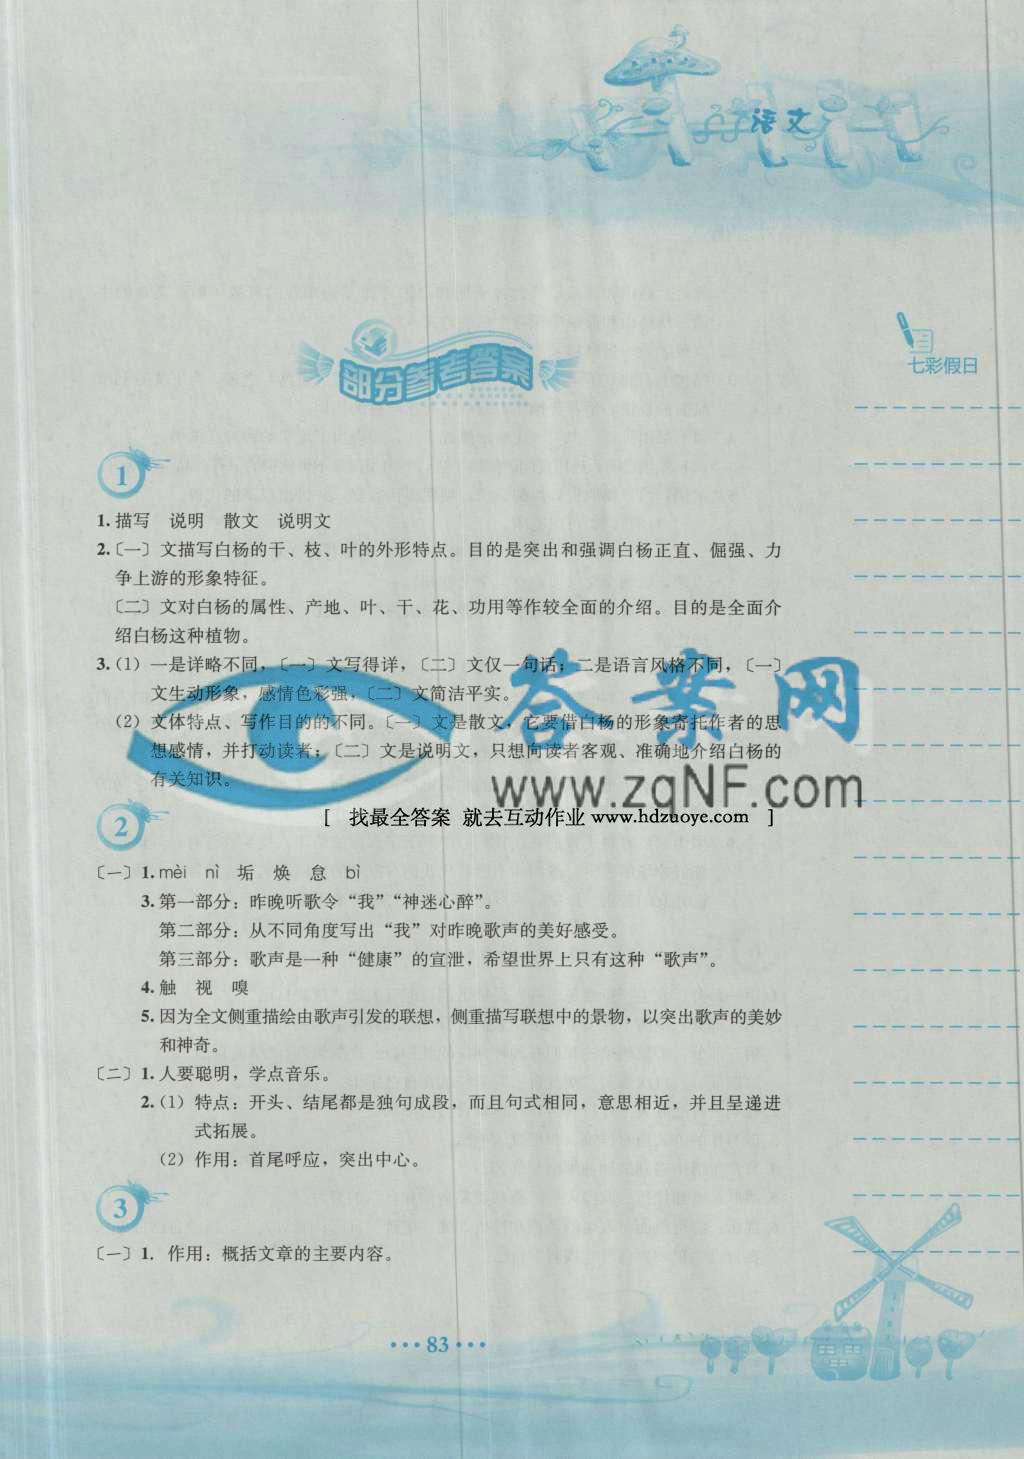 语文
七彩假日
部分参考答案
1
1. 描写　说明　散文　说明文
2.〔一〕文描写白杨的干、枝、叶的外形特点。目的是突出和强调白杨正直、倔强、力
争上游的形象特征。
〔二〕文对白杨的属性、产地、叶、干、花、功用等作较全面的介绍。目的是全面介
绍白杨这种植物。
3.（1）一是详略不同，〔一〕文写得详，〔二〕文仅一句话；二是语言风格不同，〔一〕
文生动形象，感情色彩强，〔二〕文简洁平实。
（2）文体特点、写作目的的不同。〔一〕文是散文，它要借白杨的形象寄托作者的思
想感情，并打动读者；〔二〕文是说明文，只想向读者客观、准确地介绍白杨的
有关知识。
答案网
www.zqNF.com
[　找最全答案 就去互动作业 www.hdzuoye.com　]
2
〔一〕1. mèi　nì　垢　焕　怠　bì
3. 第一部分：昨晚听歌令“我”“神迷心醉”。
第二部分：从不同角度写出“我”对昨晚歌声的美好感受。
第三部分：歌声是一种“健康”的宣泄，希望世界上只有这种“歌声”。
4. 触　视　嗅
5. 因为全文侧重描绘由歌声引发的联想，侧重描写联想中的景物，以突出歌声的美妙
和神奇。
〔二〕1. 人要聪明，学点音乐。
2.（1）特点：开头、结尾都是独句成段，而且句式相同，意思相近，并且呈递进
式拓展。
（2）作用：首尾呼应，突出中心。
3
〔一〕1. 作用：概括文章的主要内容。
••• 83 •••